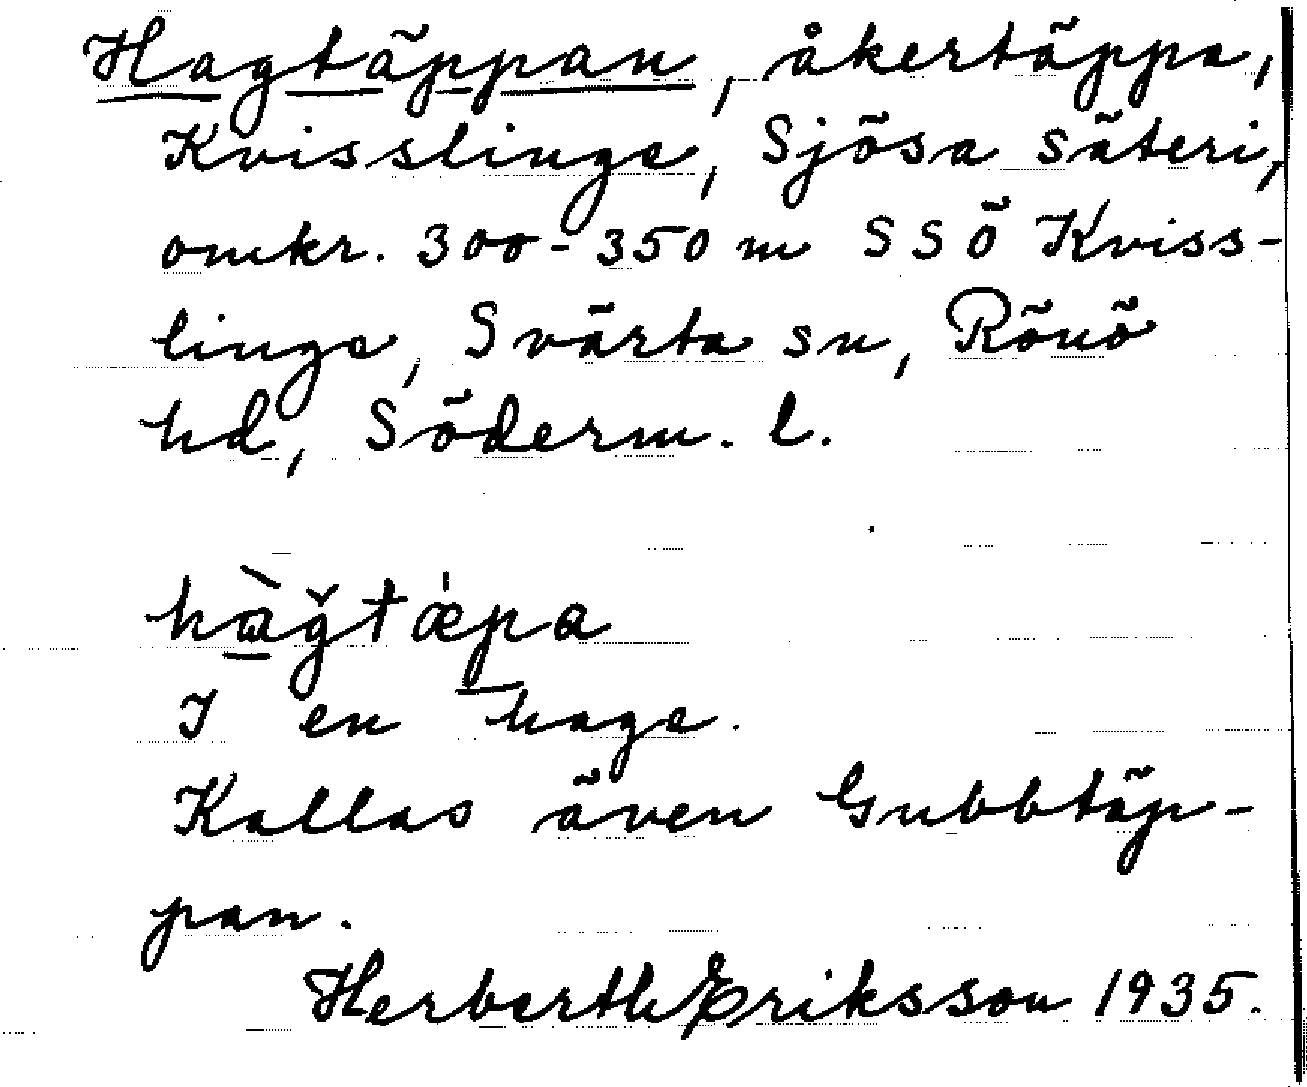 Hagtäppan, åkertäppa,
Kvisslinge, Sjösa säteri,
omkr. 300-350 m SSÖ Kviss-
linge, Svärta sn, Rönö
hd, Söderm. l.
I en hage.
Kallas även Gubbtäp-
pan.
Herberth Eriksson 1935.